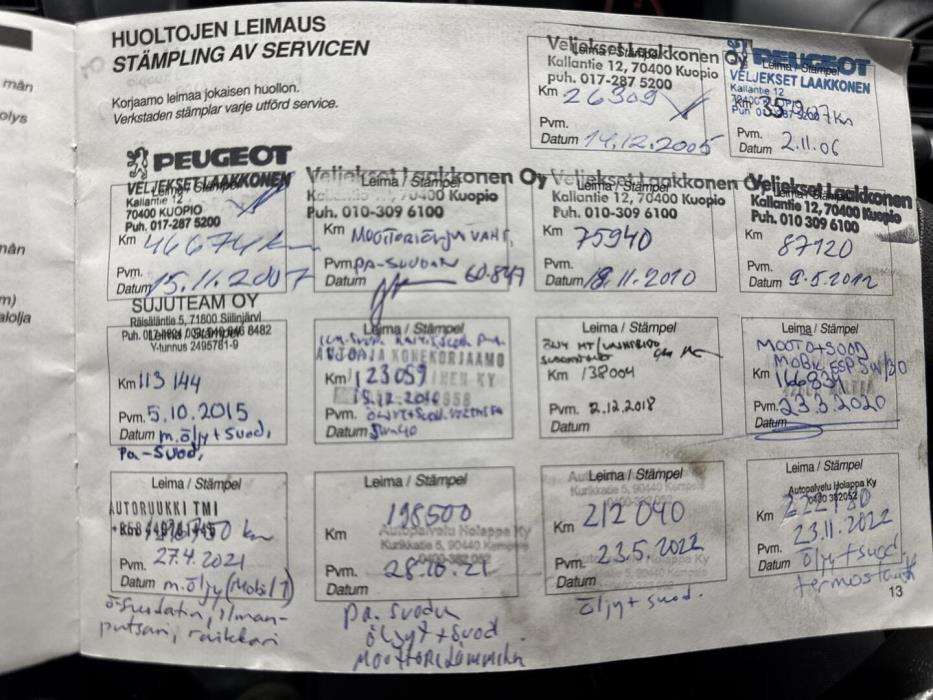 män
olys
nän
m)
alolja
HUOLTOJEN LEIMAUS
STÄMPLING AV SERVICEN
Korjaamo leimaa jokaisen huollon.
Verkstaden stämplar varje utförd service.
Veljekset Laakkonen Oy
Leima / Stämpel
Kallantie 12, 70400 Kuopio
puh. 017-287 5200
Km 26309
Pvm.
Datum 14.12.2005
PEUGEOT
Leima / Stämpel
VELJEKSET LAAKKONEN
Kallantie 12
Km
Pvm.
Datum 2.11.06
PEUGEOT
VELJEKSET LAAKKONEN
Kallantie 12
70400 KUOPIO
Puh. 017-287 5200
Km 46674 km
Pvm.
Datum 15.11.2007
Veljekset Laakkonen Oy
Leima / Stämpel
70400 Kuopio
Puh. 010-309 6100
Km
Pvm. PA-SUODAN
Datum 60.847
Veljekset Laakkonen Oy
Leima / Stämpel
Kallantie 12, 70400 Kuopio
Puh. 010-309 6100
Km 75940
Pvm.
Datum 18.11.2010
Veljekset Laakkonen
Kallantie 12, 70400 Kuopio
Puh. 010 309 6100
Km 87120
Pvm.
Datum 9.5.2012
SUJUTEAM OY
Räisäläntie 5, 71800 Siilinjärvi
8482
Y-tunnus 2495781-9
Km 113 144
Pvm. 5.10.2015
Datum m.öljy + Suod,
Pa-Suod,
Leima / Stämpel
KONEKORJAAMO
Km 123059
15.12.2016
Pvm.
Datum 5W40
Leima / Stämpel
Km 138004
Pvm. 2.12.2018
Datum
Leima / Stämpel
MOOT.Ö+SUOD
MOBIL ESP 5W/30
Km
Pvm. 23.3.2020
Datum
Leima / Stämpel
AUTORUUKKI TMI
Km
Pvm. 27.4.2021
Datum m.öljy (Mobil 1)
ö-suodatin, ilman-
putsari, raikkari
Leima / Stämpel
198500
Km
Autopalvelu Holappa Ky
Kurikkatie 5, 90440 Kempele
0400-382 052
Pvm. 28.10.21
Datum
pa. suodu
öljyt + suod
Leima / Stämpel
Kurikkatie 5, 90440 Kempele
Km 212 040
Pvm. 23.5.2022
Datum
öljy + suod.
Leima / Stämpel
Autopalvelu Holappa Ky
0400 382052
Km
23.11.2022
Pvm.
Datum öljy + suod
termostaatit
13